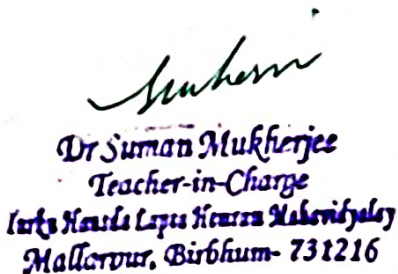 Dr Suman Mukherjee
Teacher-in-Charge
Mahavidyalay
Mallarpur, Birbhum- 731216